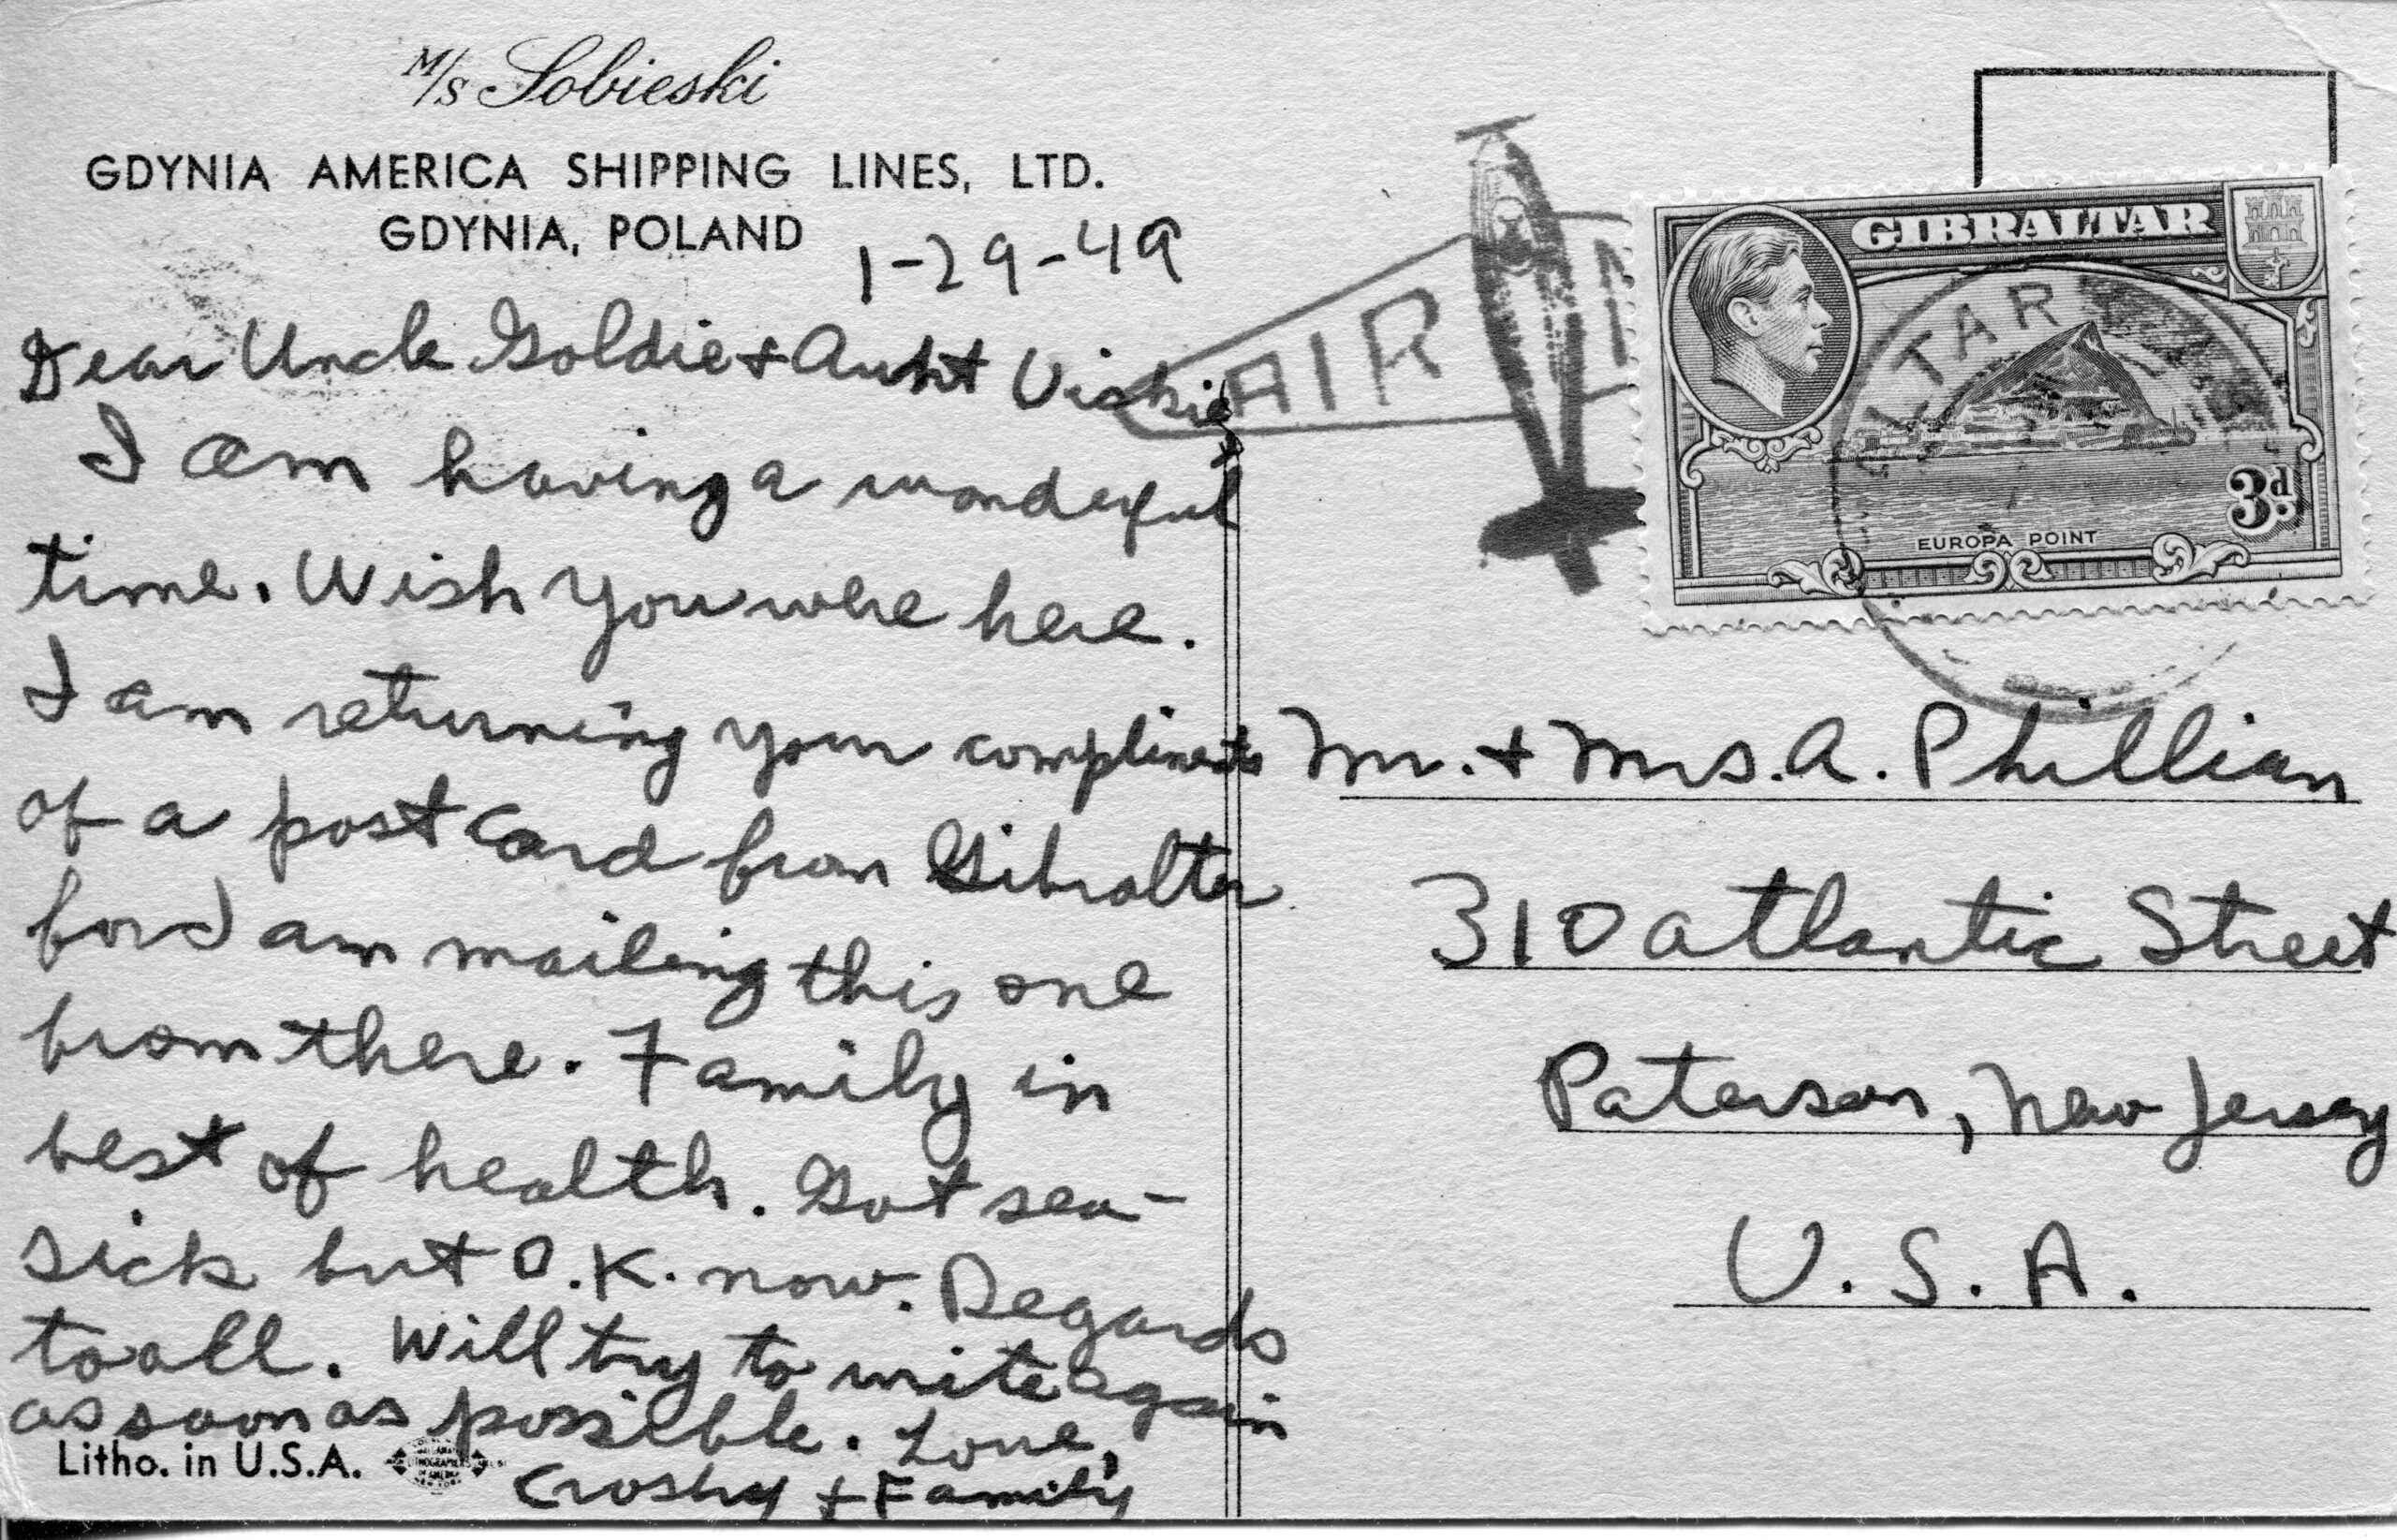 M/S Sobieski
GDYNIA AMERICA SHIPPING LINES, LTD.
GDYNIA, POLAND
1-29-49
Dear Uncle Goldie + Aunt Vickie,
I am having a wonderful
time. Wish you were here.
I am returning your compliments
of a post card from Gibralter
for I am mailing this one
from there. Family in
best of health. Got sea-
sick but O.K. now. Regards
to all. Will try to write again
as soon as possible. Love,
Crosby + Family
Litho. in U.S.A.
AIR
GIBRALTAR
LTAR
3d
EUROPA POINT
Mr. + Mrs. A. Phillian
310 Atlantic Street
Paterson, New Jersey
U.S.A.